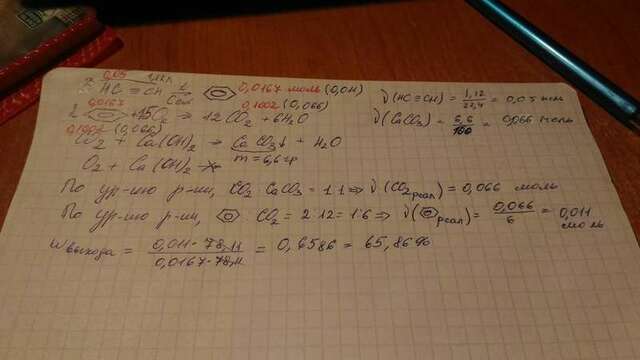 0,05 1,12л
3HC ≡ CH t/Cакт → 0,0167 моль (0,011)
0,0167 0,1002 (0,066)
2 + 15O₂ → 12CO₂ + 6H₂O
0,1002 (0,066)
CO₂ + Ca(OH)₂ → CaCO₃↓ + H₂O
m = 6,6 гр
O₂ + Ca(OH)₂ ↛
ν(HC≡CH) = 1,12/22,4 = 0,05 моль
ν(CaCO₃) = 6,6/100 = 0,066 моль
По ур-нию р-ии, CO₂ CaCO₃ = 1:1 ⇒ ν(CO₂ реал) = 0,066 моль
По ур-нию р-ии, CO₂ = 2:12 = 1:6 ⇒ ν( реал) = 0,066/6 = 0,011 моль
ωвыхода = 0,011·78,11/0,0167·78,11 = 0,6586 = 65,86%